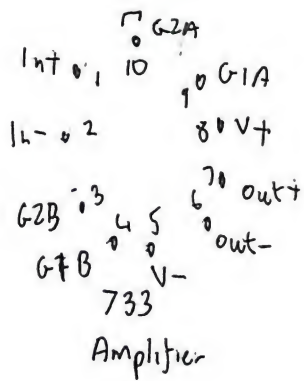 G2A
In+ 1 10 9 G1A
In- 2 8 V+
G2B 3 7 out+
G1B 4 5 6 out-
V-
733
Amplifier